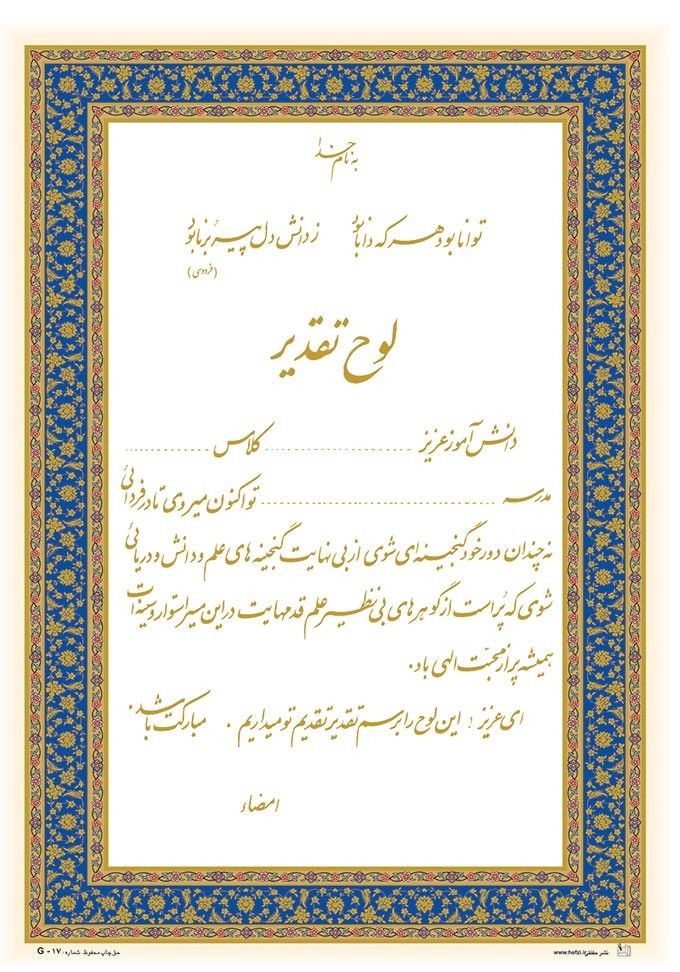 به نام خدا
توانا بود هر که دانا بود ز دانش دل پیر برنا بود
(فردوسی)
لوح تقدیر
دانش آموز عزیز .............................. کلاس ..................
مدرسه ................................................ تو اکنون میروی تا در فردائی
نه چندان دور خود گنجینه ای شوی از بی نهایت گنجینه های علم و دانش و دریائی
شوی که پُر است از گوهرهای بی نظیر علم قدمهایت در این مسیر استوار و سینه ات
همیشه پر از محبّت الهی باد.
ای عزیز : این لوح را برسم تقدیر تقدیم تو میداریم . مبارکت باشد.
امضاء
حق چاپ محفوظ. شماره: G - ۱۷
نشر حفظی www.hefzi.ir